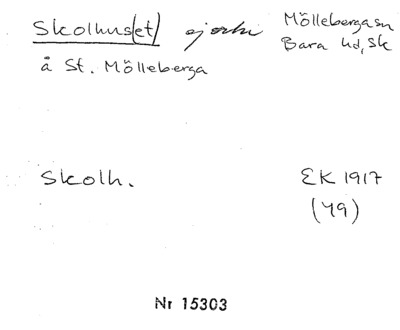 Skolhus(et) ej ark Möllebergasn
Bara hd, Sk
å St. Mölleberga
Skolh. EK 1917
(49)
Nr 15303